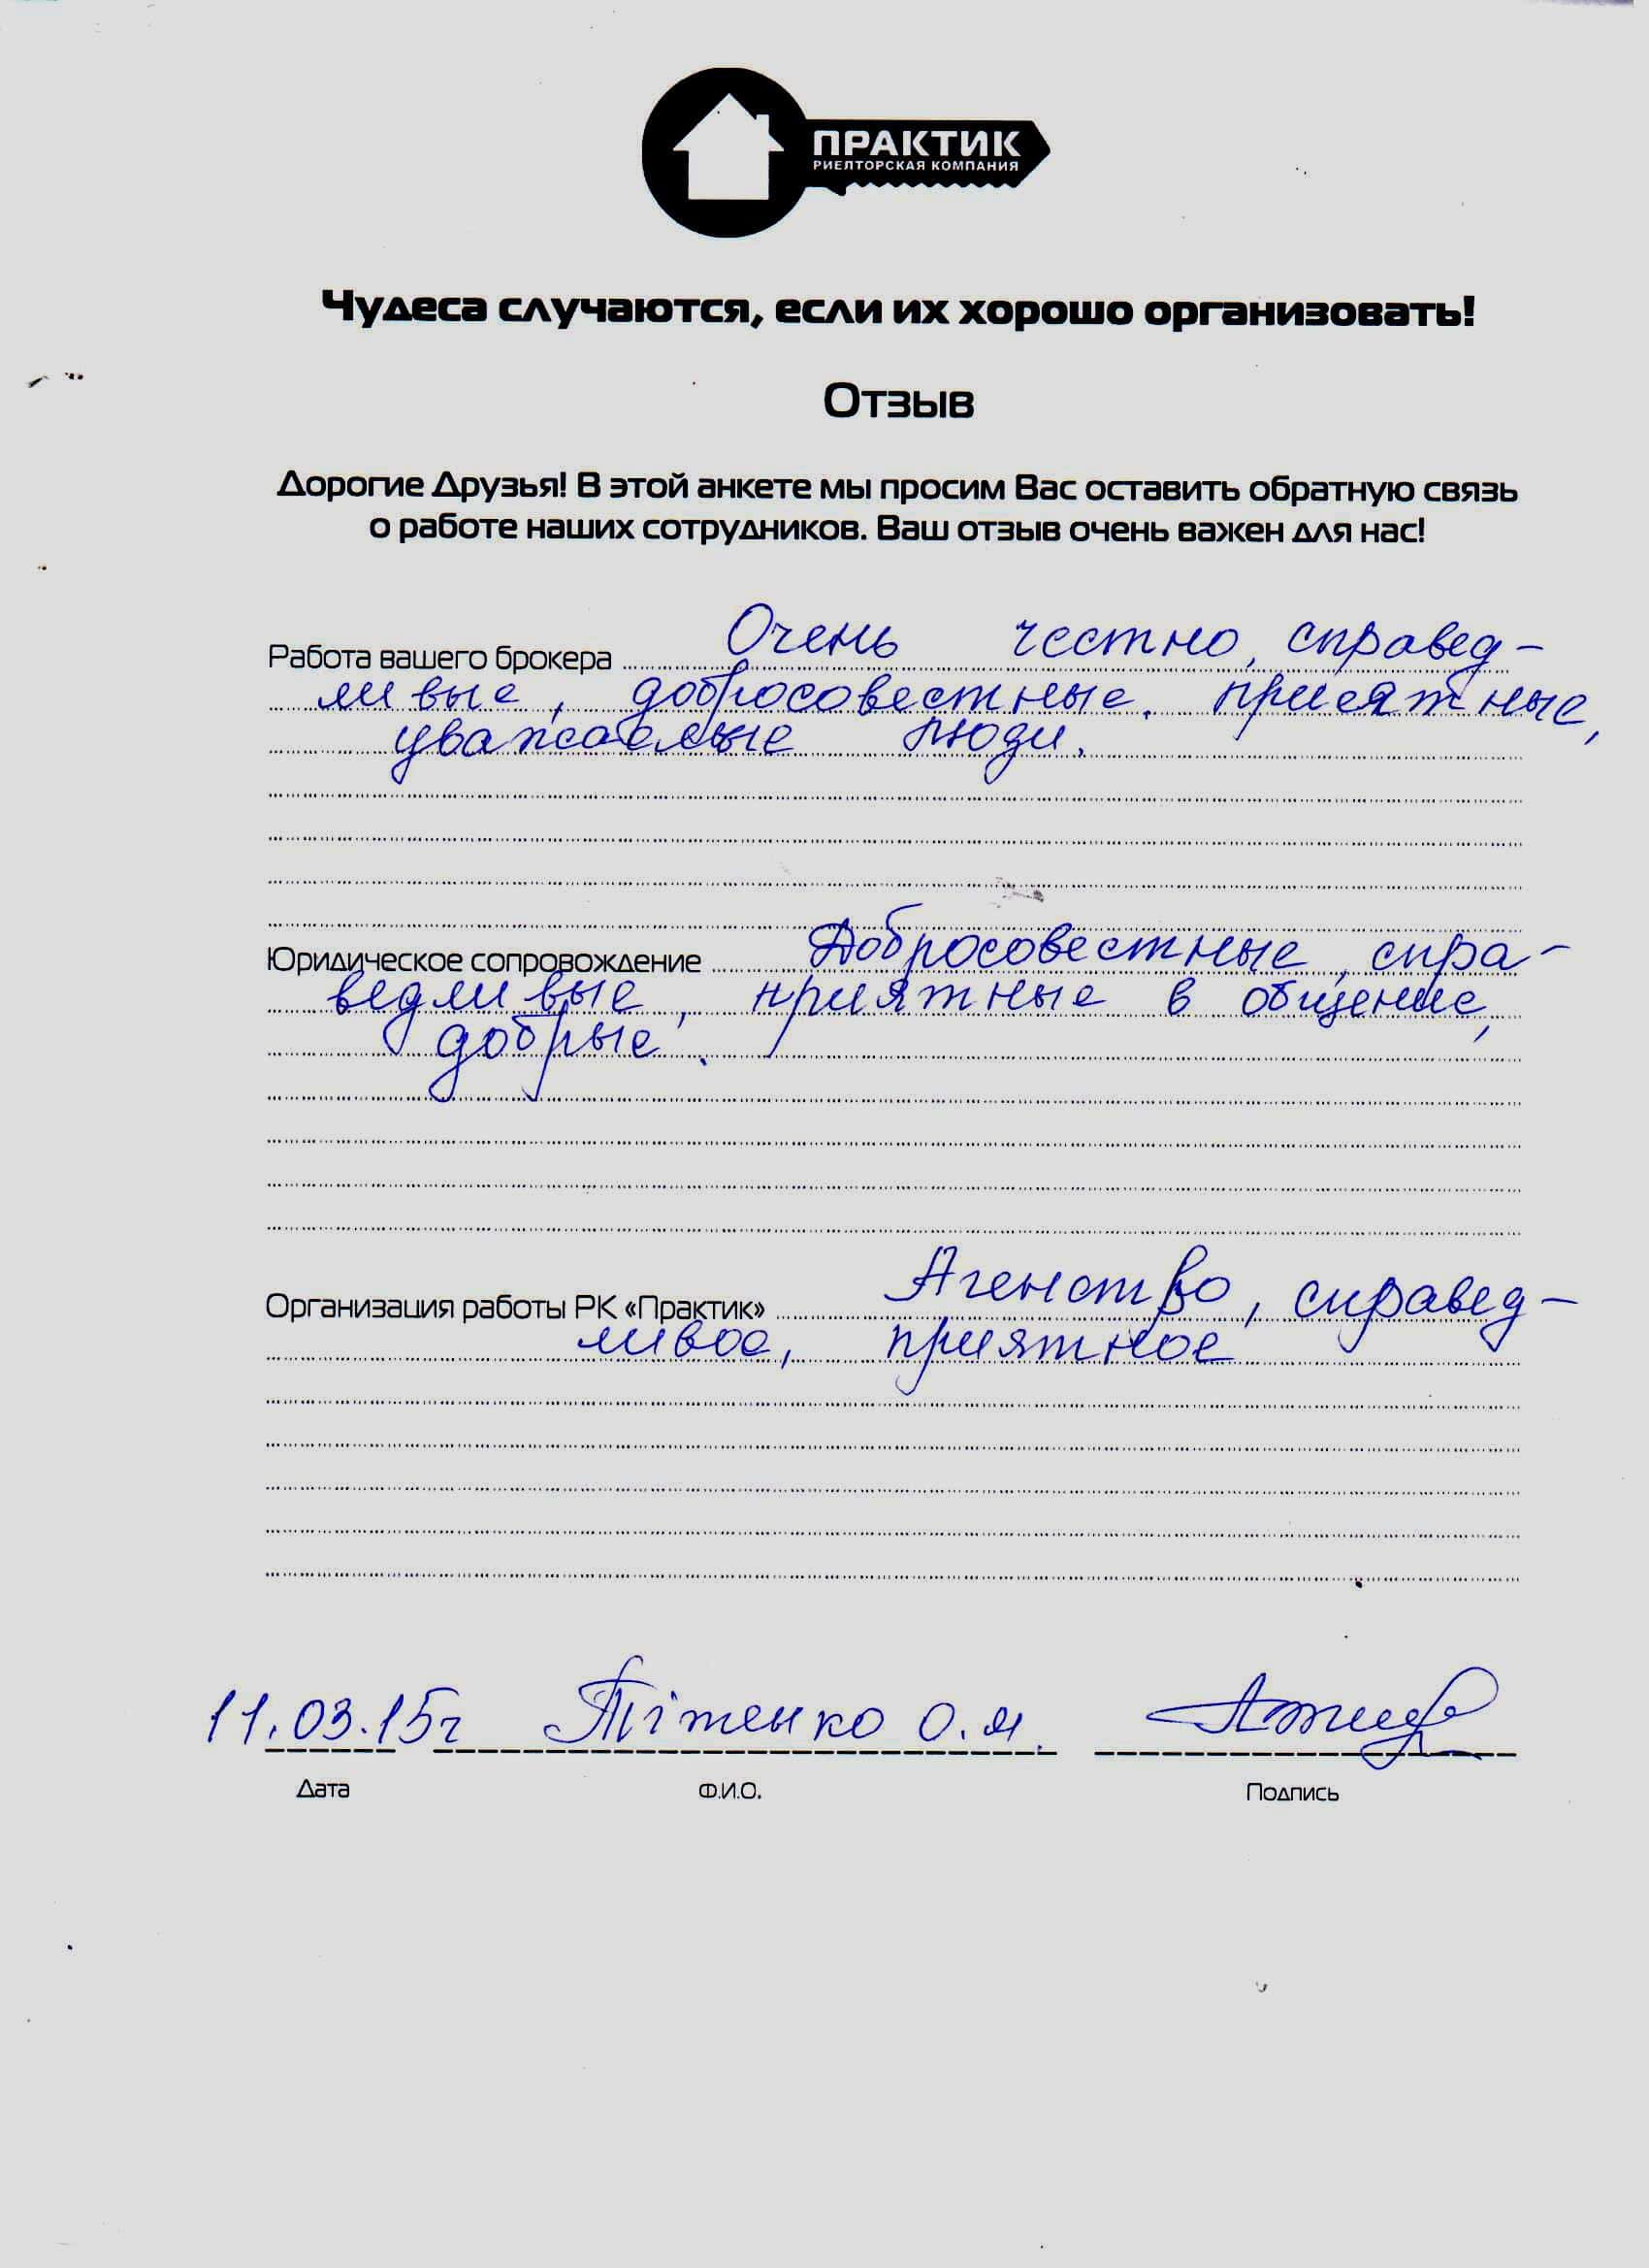 ПРАКТИК
РИЕЛТОРСКАЯ КОМПАНИЯ
Чудеса случаются, если их хорошо организовать!
Отзыв
Дорогие Друзья! В этой анкете мы просим Вас оставить обратную связь
о работе наших сотрудников. Ваш отзыв очень важен для нас!
Работа вашего брокера Очень честно, справед-
ливые, добросовестные, приятные,
уважаемые люди.
Юридическое сопровождение Добросовестные, спра-
ведливые, приятные в общение,
добрые.
Организация работы РК «Практик» Агенство, справед-
ливое, приятное
11.03.15г Тітенко О.Я.
Дата Ф.И.О. Подпись